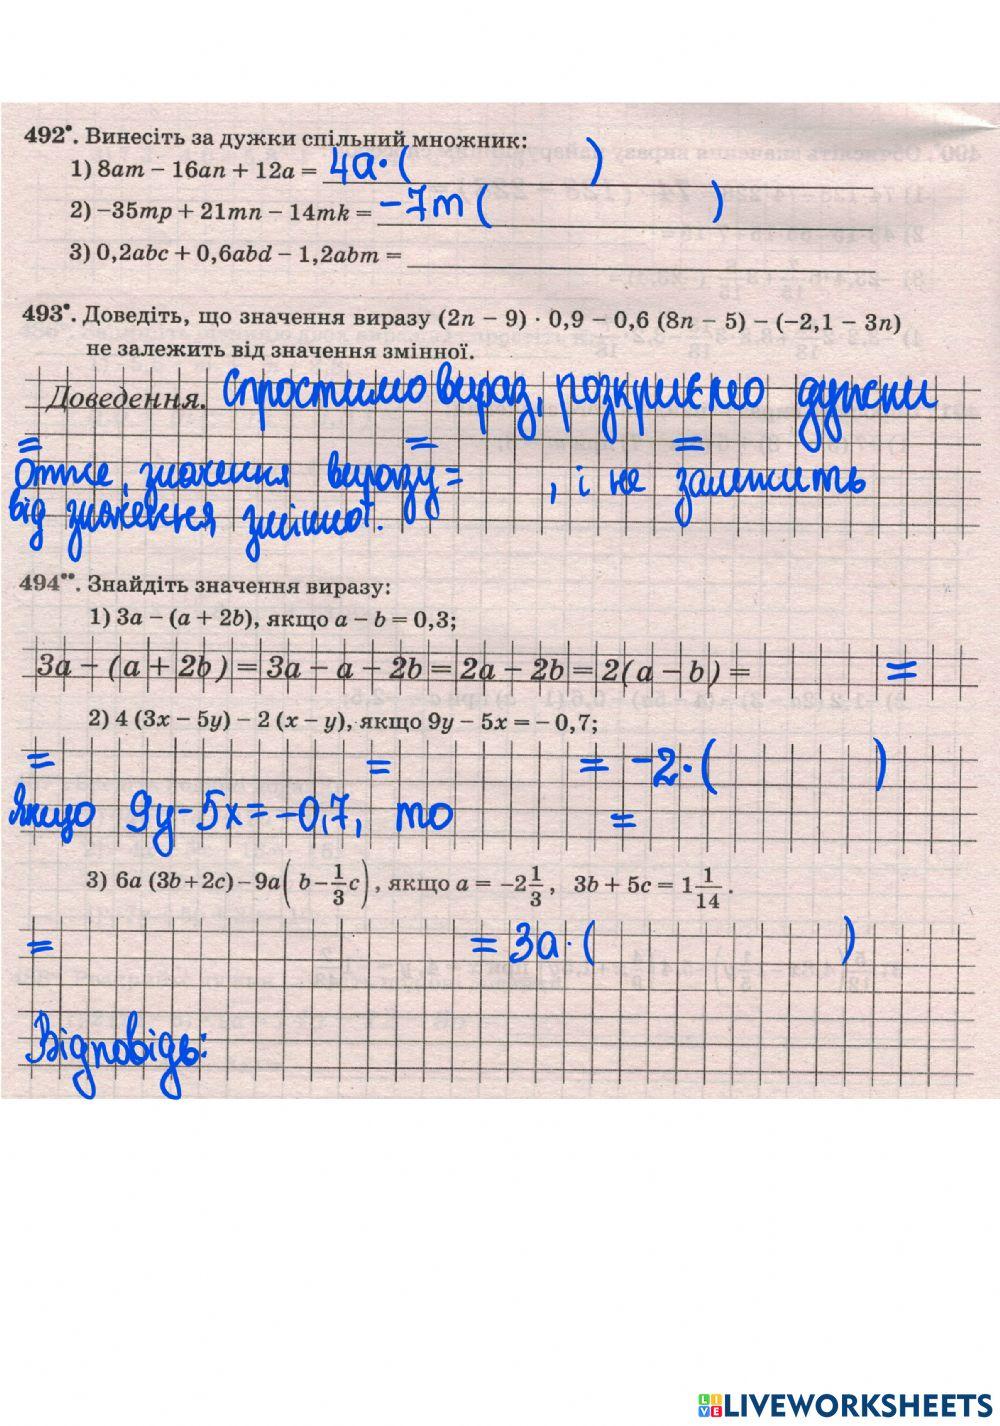 492•. Винесіть за дужки спільний множник:
1) 8am − 16an + 12a = 4a·( )
2) −35mp + 21mn − 14mk = −7m ( )
3) 0,2abc + 0,6abd − 1,2abm =
493•. Доведіть, що значення виразу (2n − 9) · 0,9 − 0,6 (8n − 5) − (−2,1 − 3n)
не залежить від значення змінної.
Доведення. Спростимо вираз, розкриємо дужки
= = =
Отже, значення виразу = , і не залежить
від значення змінної.
494••. Знайдіть значення виразу:
1) 3a − (a + 2b), якщо a − b = 0,3;
3a − (a + 2b) = 3a − a − 2b = 2a − 2b = 2(a − b) = =
2) 4 (3x − 5y) − 2 (x − y), якщо 9y − 5x = − 0,7;
= = = −2·( )
Якщо 9y − 5x = −0,7, то =
3) 6a (3b + 2c) − 9a( b − 1/3 c), якщо a = −2 1/3, 3b + 5c = 1 1/14.
= = 3a·( )
Відповідь:
LIVEWORKSHEETS